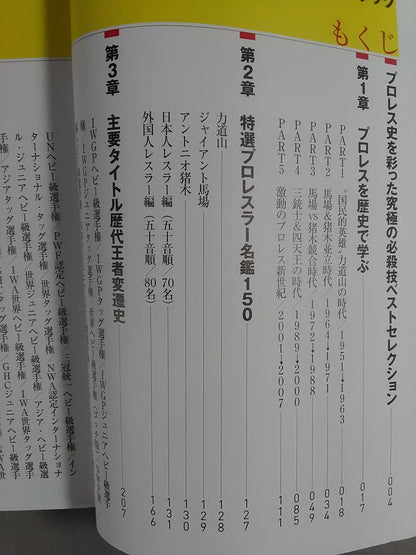 もくじ
プロレス史を彩った究極の必殺技ベストセレクション 004
第1章 プロレスを歴史で学ぶ 017
PART1 “国民的英雄”力道山の時代/1951→1963 018
PART2 馬場&猪木並立時代/1964→1971 034
PART3 馬場vs猪木競合時代/1972→1988 049
PART4 三銃士&四天王の時代/1989→2000 085
PART5 激動のプロレス新世紀/2001→2007 111
第2章 特選プロレスラー名鑑150 127
力道山 128
ジャイアント馬場 129
アントニオ猪木 130
日本人レスラー編(五十音順/70名) 131
外国人レスラー編(五十音順/80名) 166
第3章 主要タイトル歴代王者変遷史 207
IWGPヘビー級選手権/IWGPタッグ選手権/IWGPジュニアヘビー級選手
権/IWGPジュニアタッグ選手権/世界ヘビー級選手権
UNヘビー級選手権/PWF認定ヘビー級選手権/三冠統一ヘビー級選手権/イン
ターナショナル・タッグ選手権/世界タッグ選手権/NWA認定インターナショナ
ル・ジュニアヘビー級選手権/世界ジュニアヘビー級選手権/アジア・ヘビー級選
手権/アジアタッグ選手権/IWA世界ヘビー級選手権/IWA世界タッグ選手
GHCジュニアヘビー級選手